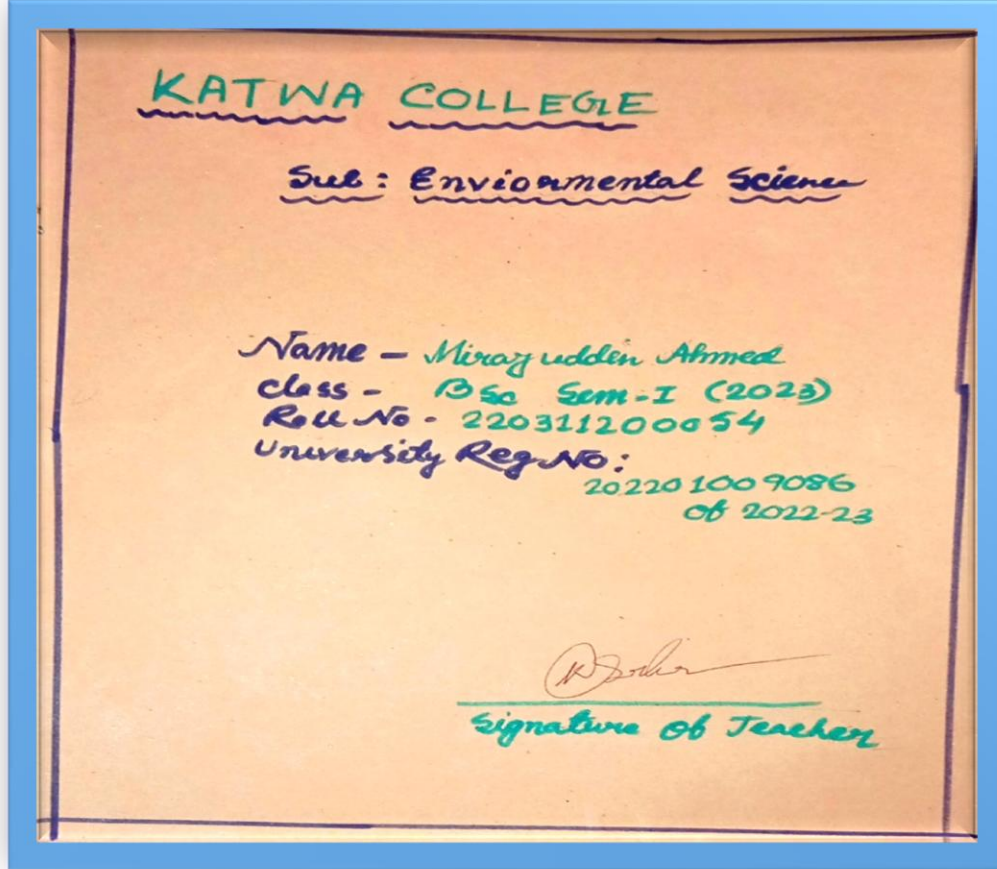 KATWA COLLEGE
Sub: Enviormental Science
Name - Miraj uddin Ahmed
Class - BSc Sem-I (2023)
Roll No - 220311200054
University Reg. No:
202201009086
of 2022-23
Signature of Teacher